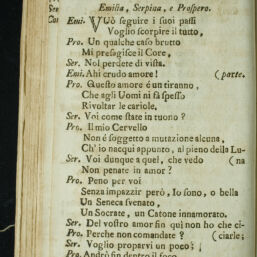 Emilia, Serpina, e Prospero.
Emi. VUò seguire i suoi passi
Voglio scorpire il tutto,
Pro. Un qualche caso brutto
Mi presagisce il Core,
Ser. Nol perdete di vista.
Emi. Ahi crudo amore! (parte.
Pro. Questo amore é un tiranno,
Che agli Uomi ni fà spesso
Rivoltar le cariole.
Ser. Voi come state in tuono?
Pro. Il mio Cervello
Non é soggetto a mutazione alcuna,
Ch' io nacqui appunto, al pieno della Lu-
Ser. Voi dunque a quel, che vedo (na
Non penate in amor?
Pro. Peno per voi
Senza impazzir però, Io sono, o bella
Un Seneca svenato,
Un Socrate, un Catone innamorato.
Ser. Del vostro amor fin quì non ho ci-
Pro. Perche non comandate? (ciarle;
Ser. Voglio proparvi un poco;
Pro. Andrò fin dentro il foco